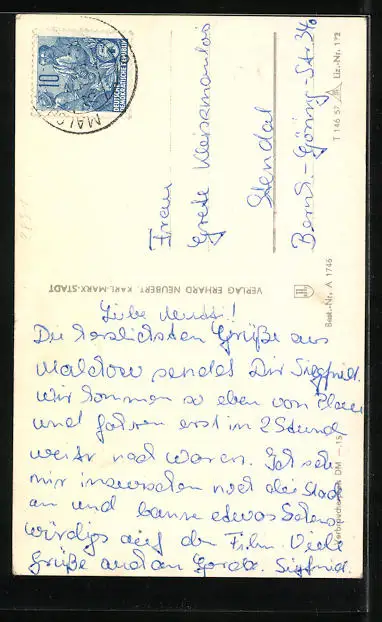 10
DEUTSCHE
DEMOKRATISCHE REPUBLIK
MALCHOW
Frau
Grete
Stendal
Bernh.-Göring-Str. 34a
T 146 57 Liz.-Nr. 1*2
VERLAG ERHARD NEUBERT, KARL-MARX-STADT
Best.-Nr. A 1746
Verbraucherpreis DM —,15
Liebe Mutti!
Die herzlichsten Grüße aus
Malchow sendet Dir Siegfried.
Wir kommen so eben von Plau
und fahren erst in 2 Stund
weiter nach Waren. Ich seh
mir inzwischen noch die Stadt
an und banne etwas Sehens
würdiges auf den Film. Viele
Grüße auch an Siegfried.